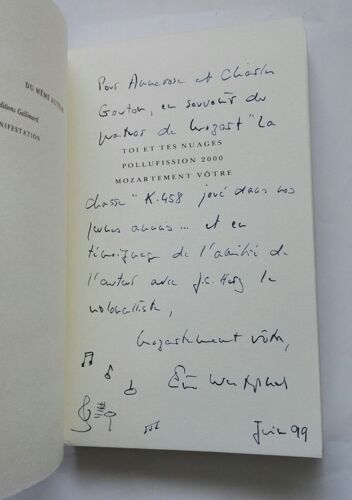 DU MÊME AUTEUR
Éditions Gallimard
MANIFESTATION
Pour Annerose et Charles
Gouton, en souvenir du
quatuor de Mozart "La
TOI ET TES NUAGES
POLLUFISSION 2000
MOZARTEMENT VÔTRE
chasse" K.458 joué dans nos
jeunes années... et en
témoignage de l'amitié de
l'auteur avec J.C. le
violoncelliste,
mozartement vôtre,
Eric Westphal
Juin 99